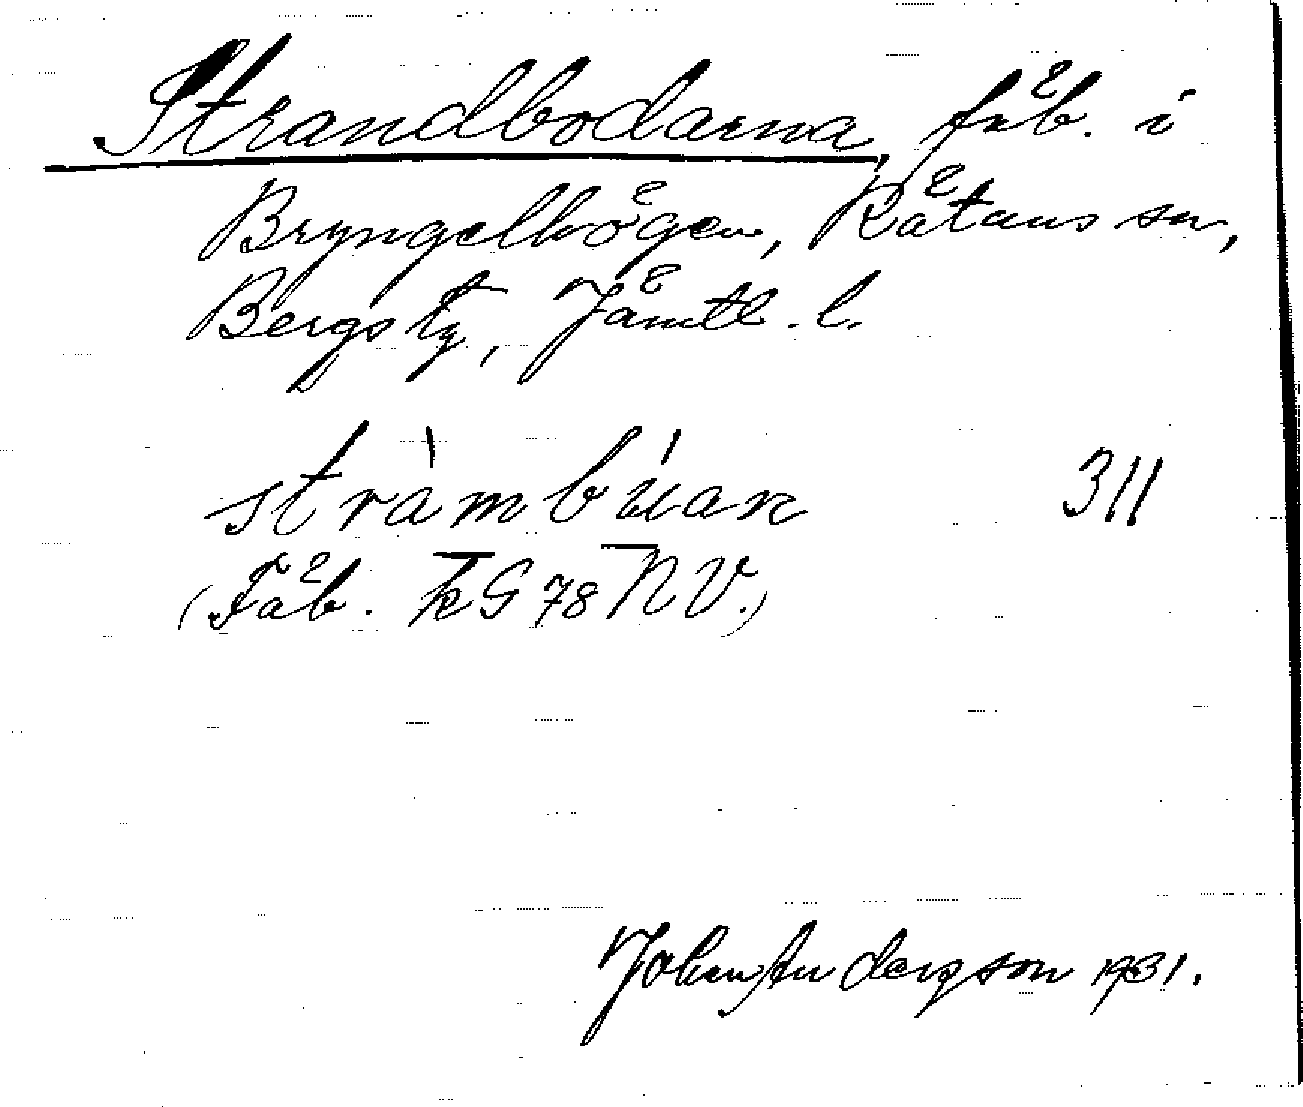 Strandbodarna, fäb. i
Bryngelhögen, Rätans sn,
Bergs tg, Jämtl. l.
stràmbúan 311
(Fäb. kG 78 NV.)
John Andersson 1931.